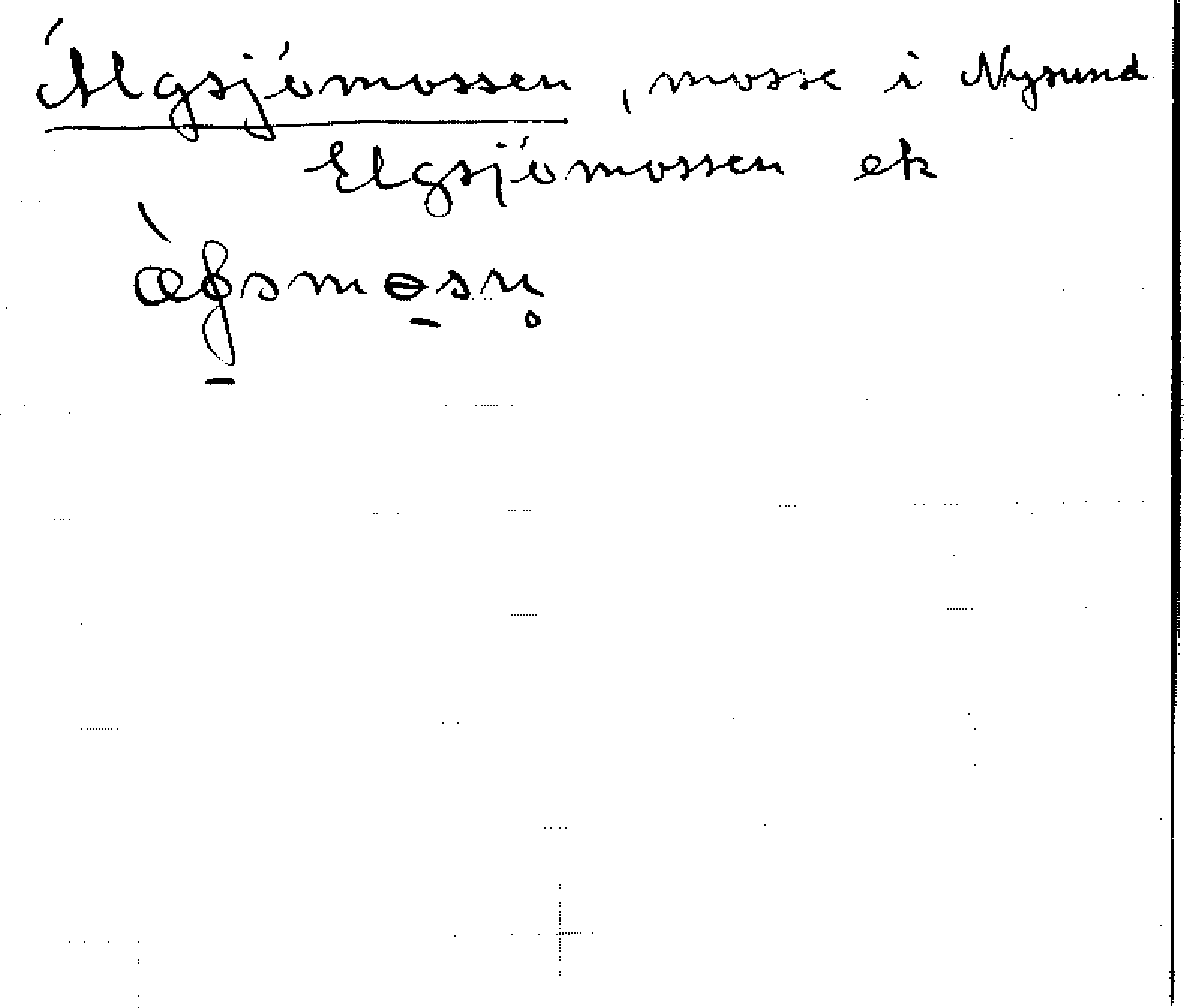 Älgsjömossen, mosse i Nysund
Elgsjömossen ek